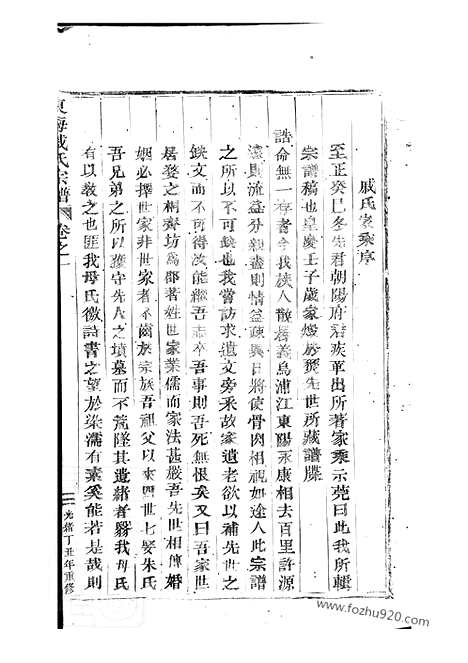 戚氏家乘序
至正癸巳冬先君朝陽府君疾革出所著家乘示苑曰此我所輯
宗譜稿也皇慶壬子歲家燬於燹先世所藏譜牒
誥命無一存者今我族人散居義烏浦江東陽永康相去百里許源
遠則流益分親盡則情益疎異日將使骨肉相視如途人此宗譜
之所以不可缺也我嘗訪求遺文旁采故家遺老欲以補先世之
缺文而不可得汝能繼吾志卒吾事則吾死無恨矣又曰吾家世
居婺之桐齊坊為郡著姓世家業儒而家法甚嚴吾先世相傳婚
姻必擇世家非世家者不齒於宗族吾祖父以來四世七娶朱氏
吾兄弟之所以獲守先人之墳墓而不荒墜其遺緒者繄我母氏
有以教之也匪我母氏徽詩書之望於染濡有素奚能若是哉則
東海戚氏宗譜
卷之一
一
光緒丁丑年重修
www.fozhu920.com